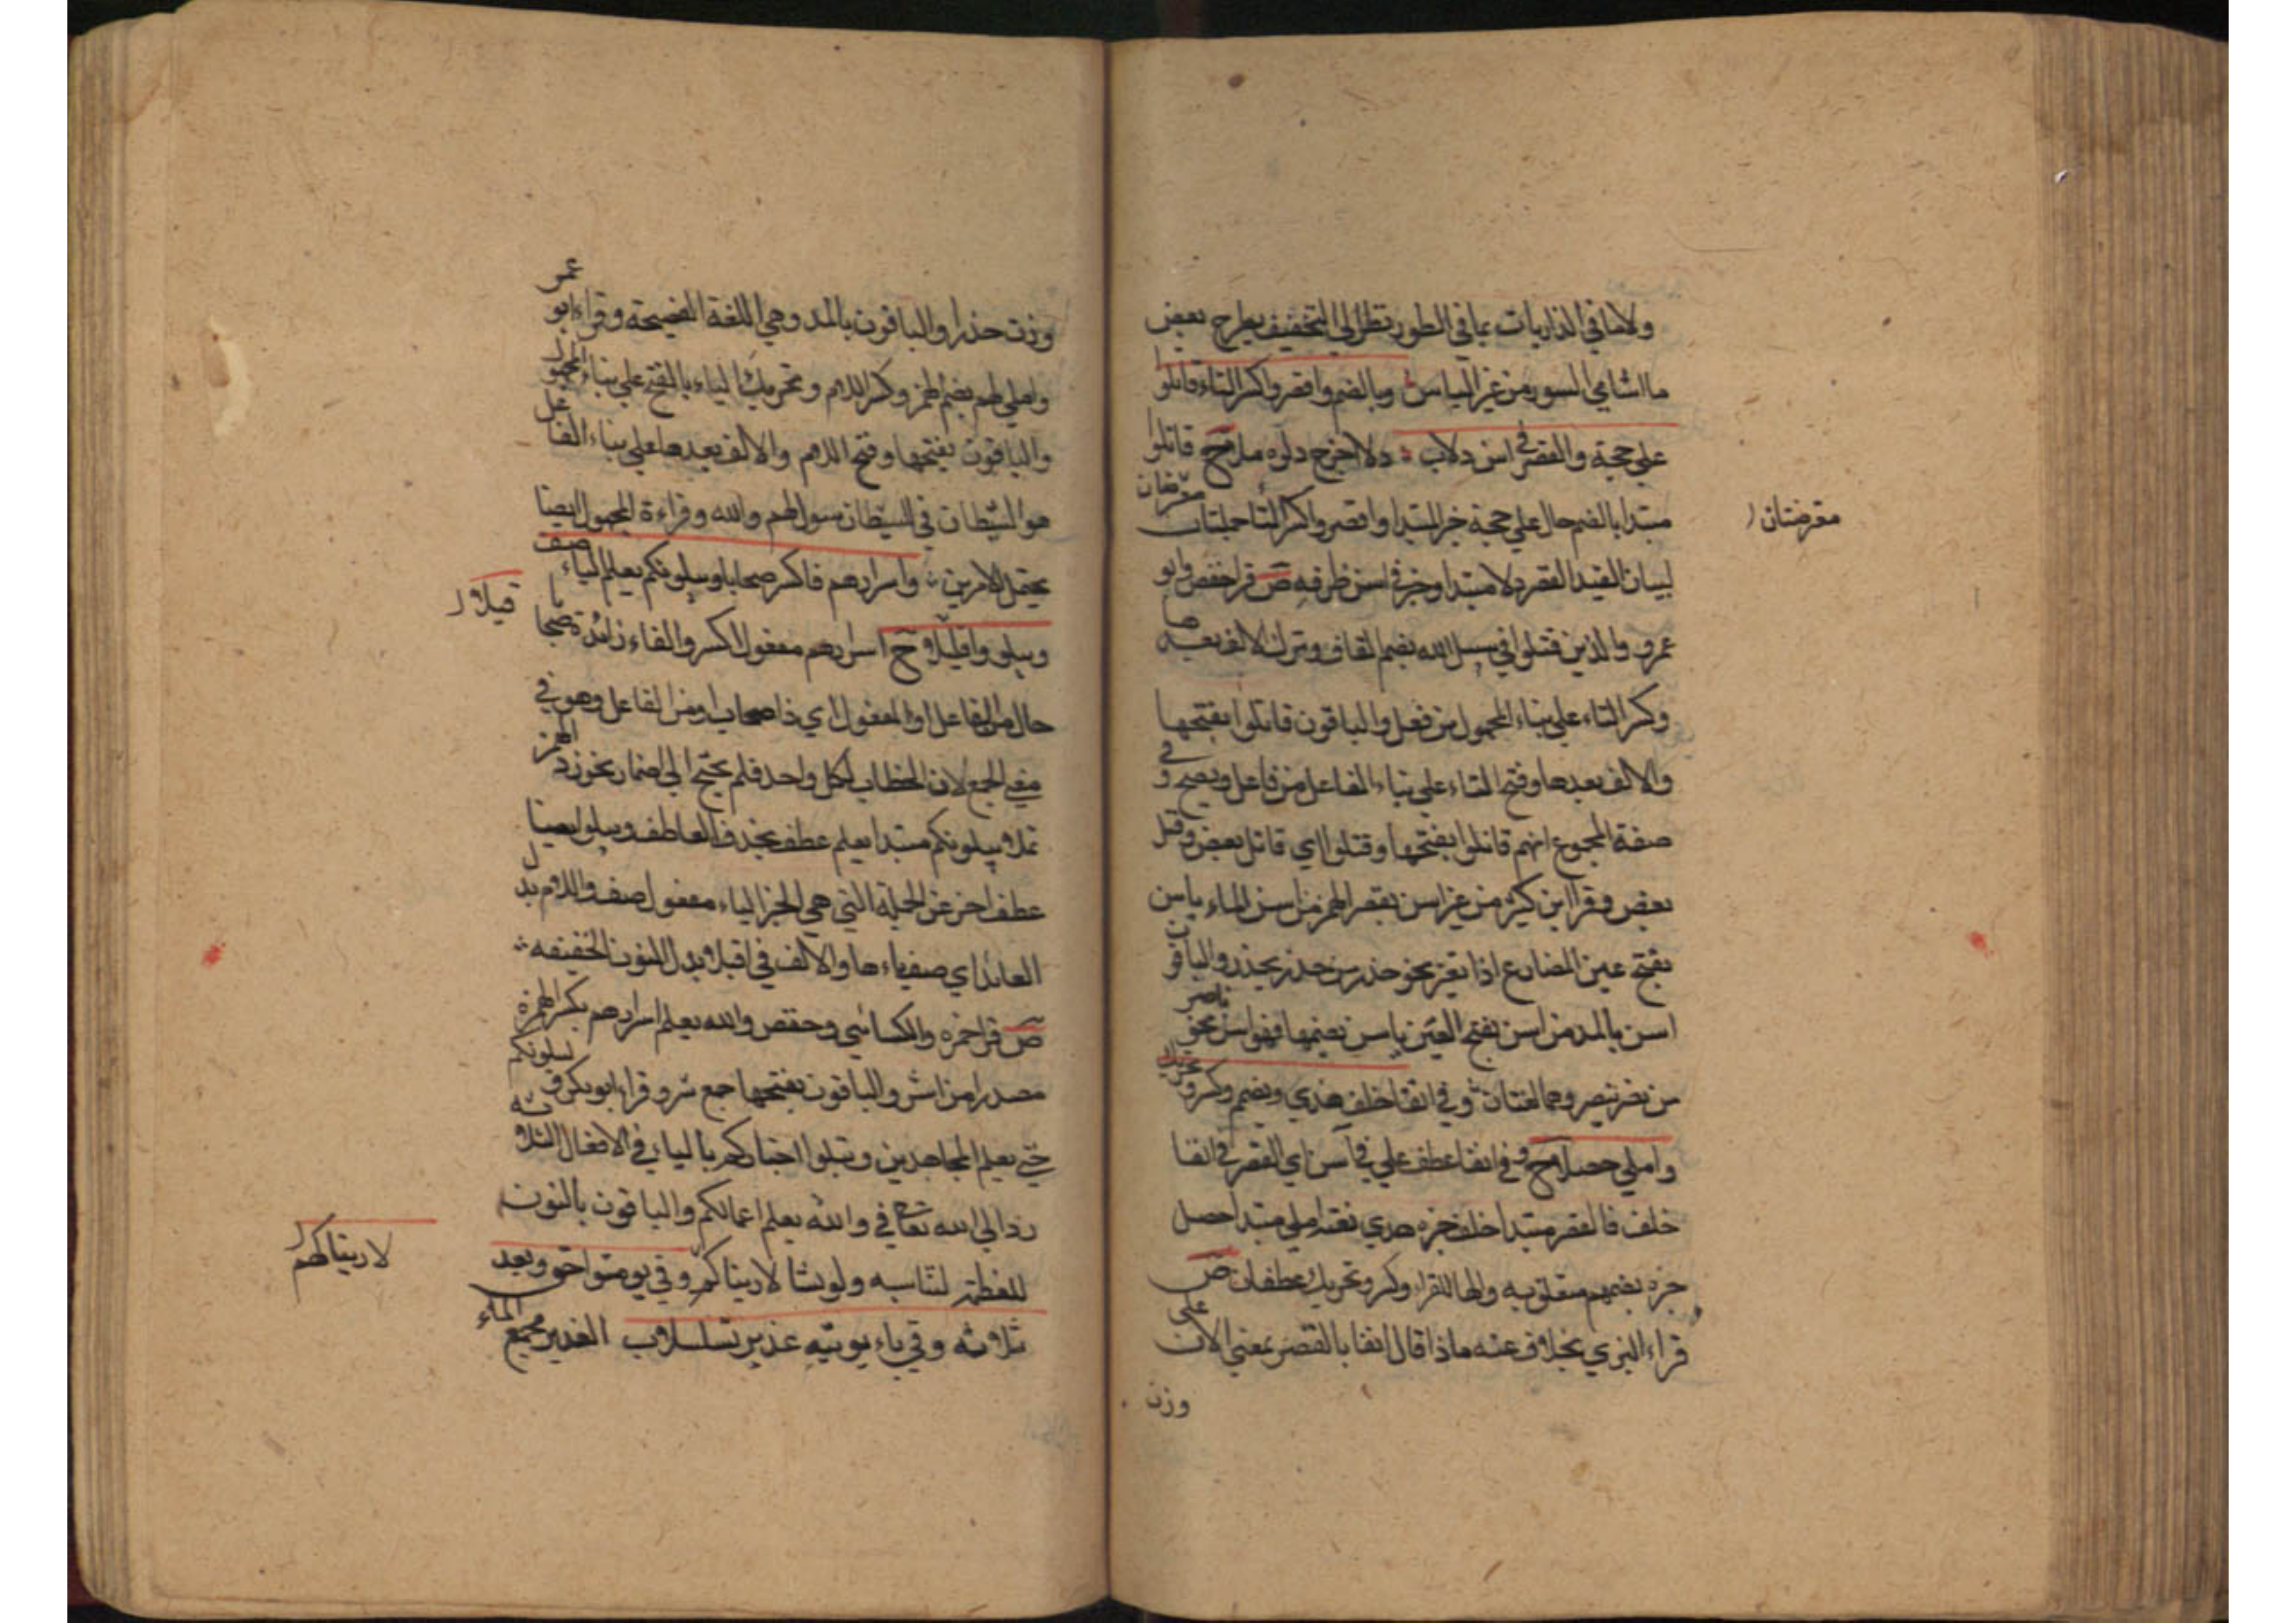 ولاما في الذاريات بما في الطور نظرا الي التخفيف بطرح بعض
ما الشامي السور من غير الباس وبالضم واقصر واكسر التاء قاتلوا
علي حجة والقصر في اسن دلاب دلا اخرج دلوه ملا ح قاتلوا
مبتدا بالضم حال علي حجة خبر المبتدا واقصر واكسر التا جملتان
معترضتان
لبيان القيد القصر دلا مبتدا وخبر في اسن ظرفه ص قرا حفص وابو
عمرو والذين قتلوا في سبيل الله بضم القاف وترك الالف بعدها
وكسر التاء علي بناء المجهول من فعل والباقون قاتلوا بفتحها
والالف بعدها وفتح التاء علي بناء الفاعل من فاعل ويصح في و
صفة المجموع انهم قاتلوا بفتحها وقتلوا اي قاتل بعض وقتل
بعض وقرا ابن كثير من غير اسن بقصر الهمز من اسن الماء ياسن
بفتح عين المضارع اذا تغير نحو حذر من حذر يحذر والباقون
اسن بالمد من اسن بفتح العين ياسن بضمها فهو اسن نحو ناصر
من نصر ينصر وهما لغتان وفي انفا خلف هدي وبضم وكسر وتحريك
واملي حصلا ح وفي انفا عطف علي في اسن اي القصر في انفا
خلف فالقصر مبتدا خلف خبره هدي نعته املي مبتدا حصل
خبره بضمهم متعلق به والها للقراء وكسر وتحريك عطفان ص
قراء البزي بخلاف عنه ماذا قال انفا بالقصر بمعني الان علي
وزن
وزن حذرا والباقون بالمد وهي اللغة الفصيحة وقراء ابو عمر
واملي لهم بضم الهمز وكسر اللام وتحريك الياء بالفتح علي بناء المجهول
والباقون بفتحها وفتح اللام والالف بعدها علي بناء الفاعل
هو الشيطان في الشيطان سول لهم والله وقراءة المجهول ايضا
يحتمل الامرين واسرارهم فاكسر صحابا ويبلونكم يعلم الياء صف
ويبلو واقبلا ح اسرارهم مفعول اكسر والفاء زائدة صحابا
قبلا
حال من الفاعل او المفعول اي ذا صحاب او من الفاعل وهو في
معني الجمع لان الخطاب لكل واحد فلم يحتج الي اضمار نحو زد الهمز
تملا يبلونكم مبتدا يعلم عطف بحذف العاطف ويبلو ايضا
عطف اخر عن الجملة التي هي الخبر الياء مفعول صف واللام بدل
العائد اي صف ياءها والالف في اقبلا بدل النون الخفيفه
ص قرا حمزه والكسائي وحفص والله يعلم اسرارهم بكسر الهمزة
مصدرا من اسر والباقون بفتحها جمع سر وقراء ابو بكر و ليبلونكم
حتي يعلم المجاهدين ويبلوا اخباركم بالياء في الافعال الثلاثه
ردا الي الله تعالي في والله يعلم اعمالكم والباقون بالنون
للعظمة لتناسبه ولو نشا لاريناكم وفي يومنوا حق وبعد
لاريناكهم
ثلاثه وفي ياء يوتيه غدير تسلسلا ب الغدير مجمع الماء